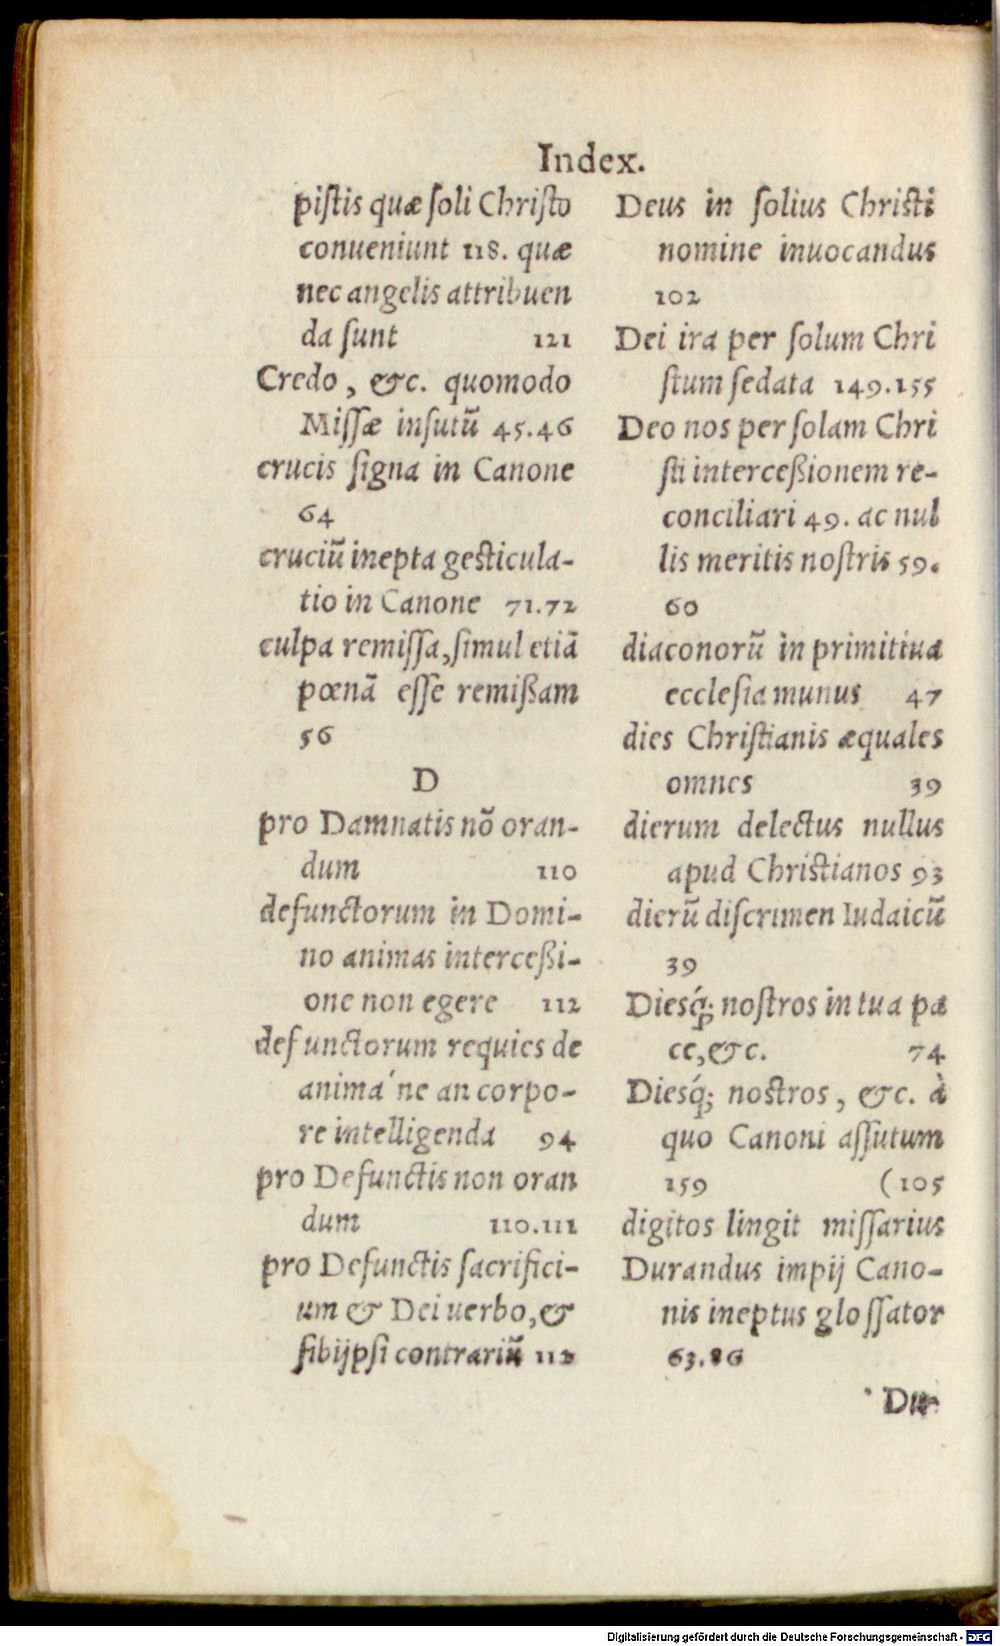 Index.
piſtis quæ ſoli Chriſto
conueniunt 118. quæ
nec angelis attribuen
da ſunt 121
Credo, &c. quomodo
Miſſæ inſutũ 45.46
crucis ſigna in Canone
64
cruciũ inepta geſticula-
tio in Canone 71.72
culpa remiſſa, ſimul etiã
pœnã eſſe remißam
56
D
pro Damnatis nõ oran-
dum 110
defunctorum in Domi-
no animas interceßi-
one non egere 112
defunctorum requies de
anima´ne an corpo-
re intelligenda 94
pro Defunctis non oran
dum 110.111
pro Defunctis ſacrifici-
um & Dei uerbo, &
ſibijpſi contrariũ 112
Deus in ſolius Chriſti
nomine inuocandus
102
Dei ira per ſolum Chri
ſtum ſedata 149.155
Deo nos per ſolam Chri
ſti interceßionem re-
conciliari 49. ac nul
lis meritis noſtris 59.
60
diaconorũ in primitiua
eccleſia munus 47
dies Chriſtianis æquales
omnes 39
dierum delectus nullus
apud Chriſtianos 93
dierũ diſcrimen Iudaicũ
39
Diesq́; noſtros in tua pa
ce, &c. 74
Diesq́; noſtros, &c. à
quo Canoni aſſutum
159 (105
digitos lingit miſſarius
Durandus impij Cano-
nis ineptus gloſſator
63.86
Digitalisierung gefördert durch die Deutsche Forschungsgemeinschaft - DFG